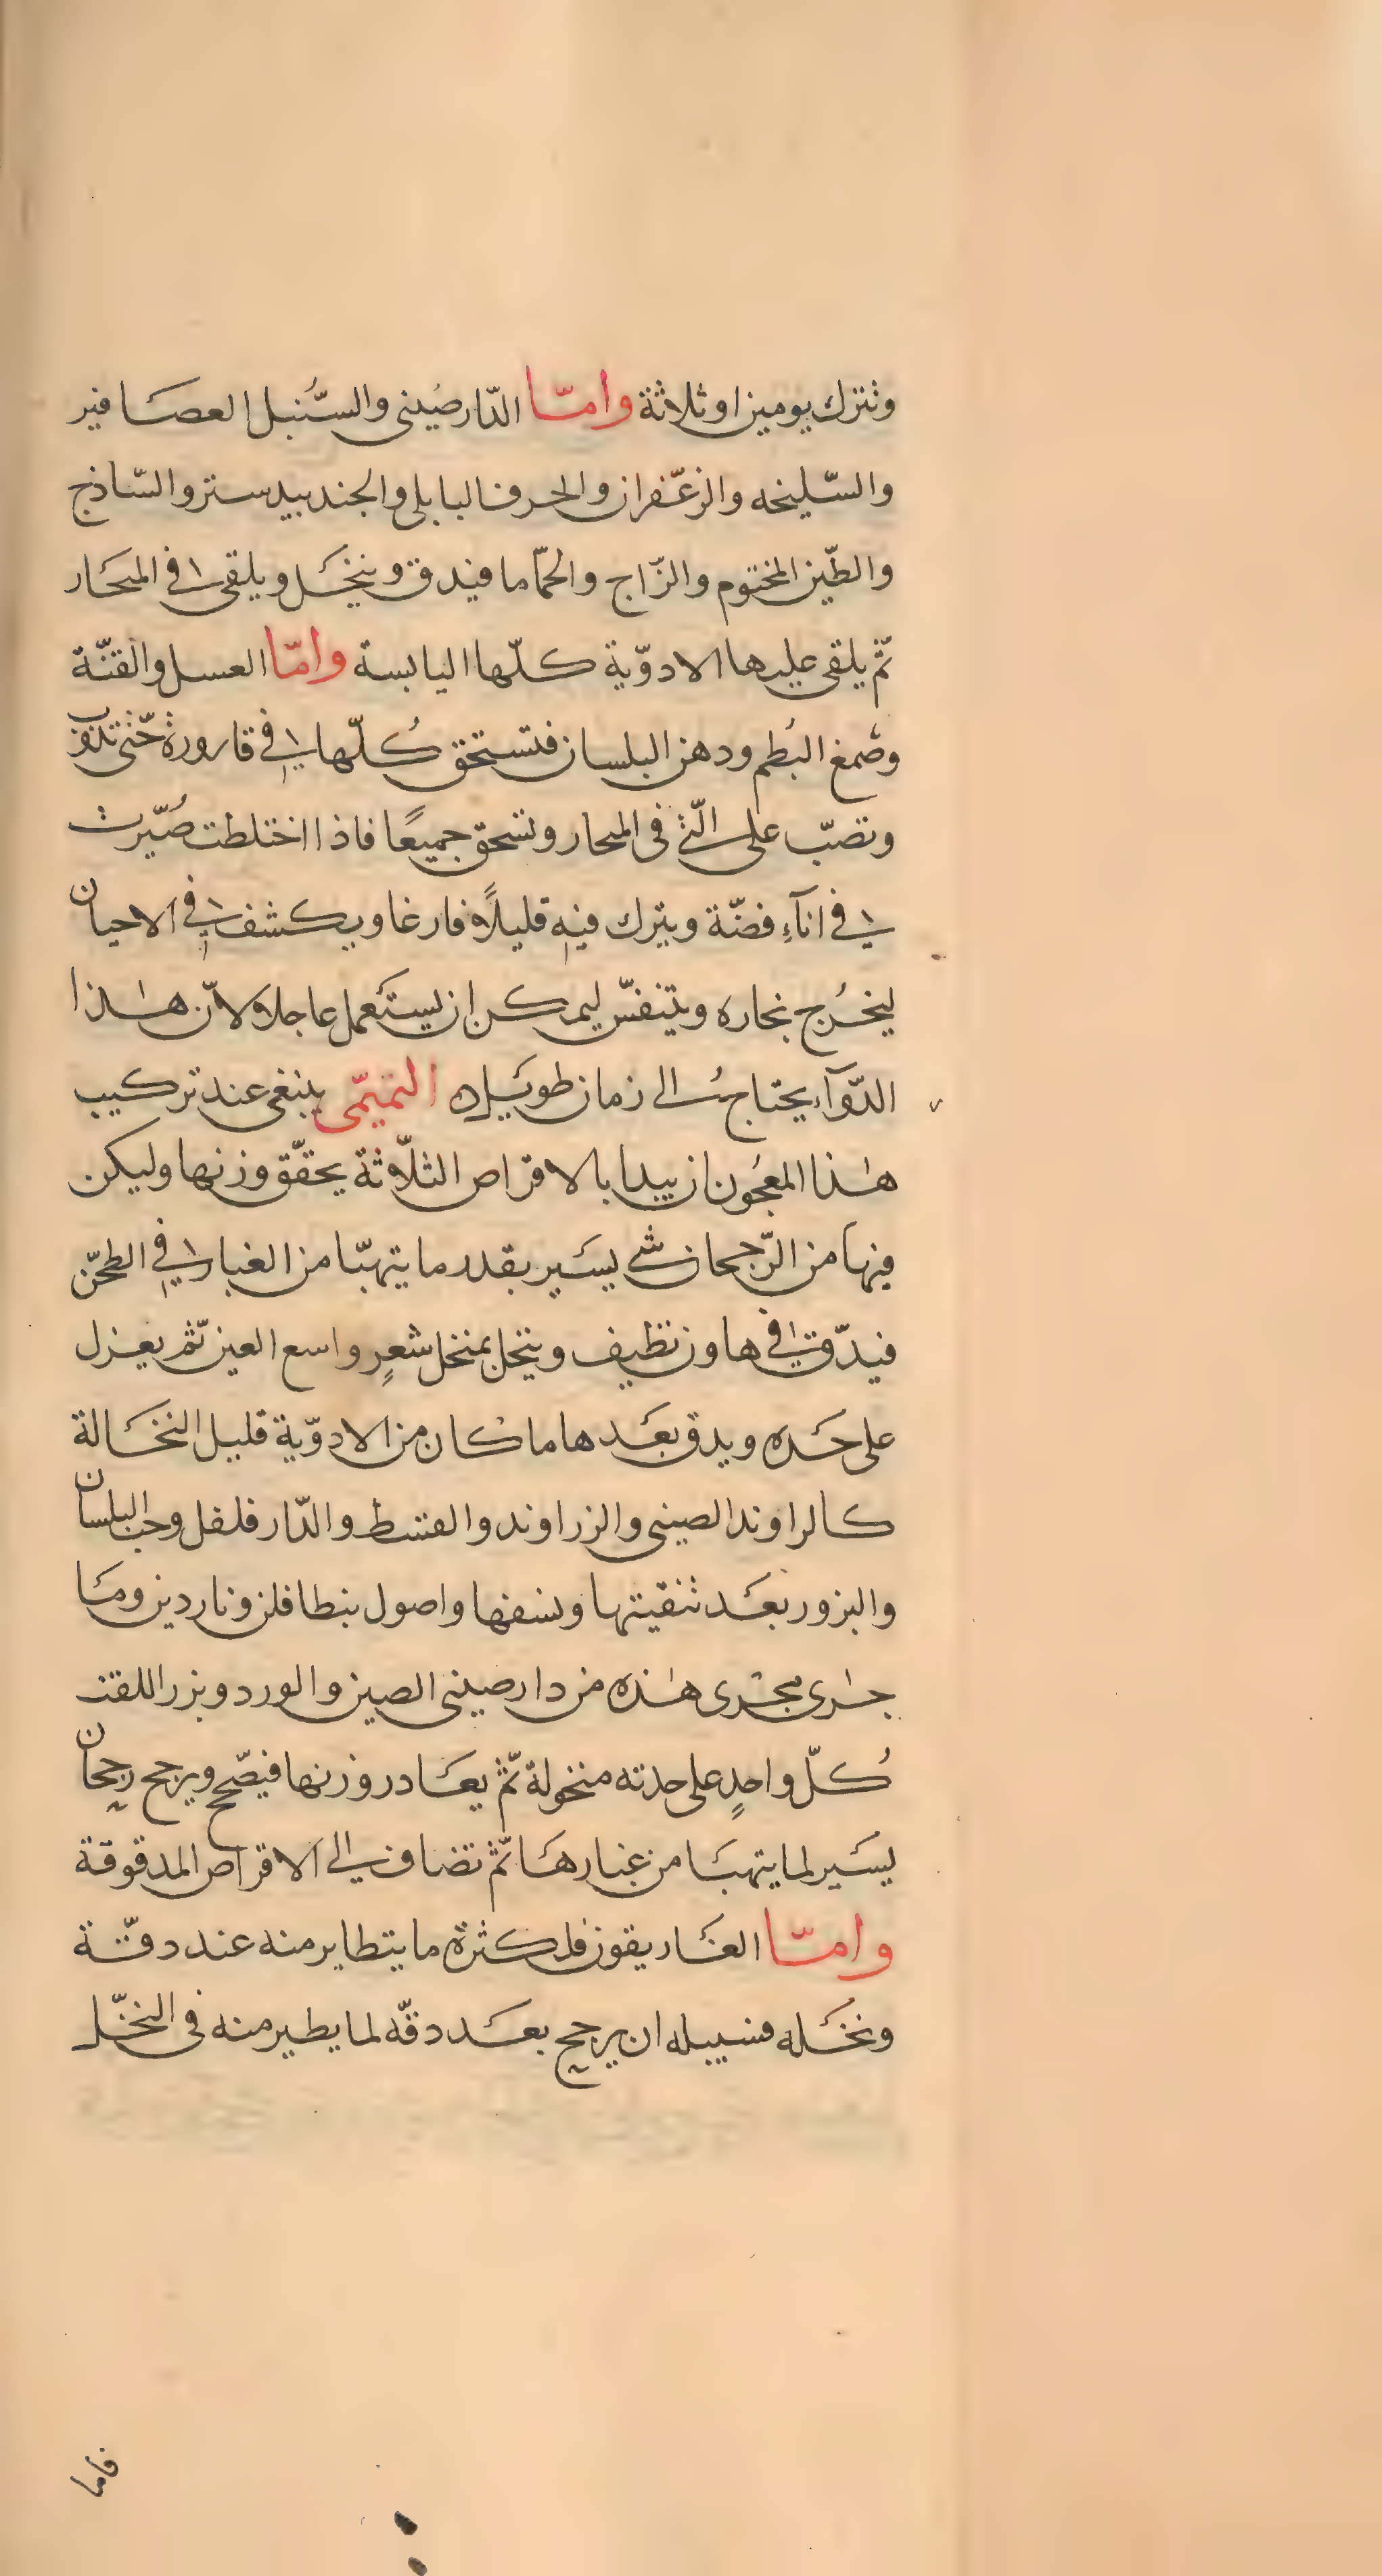 وتترك يومين او ثلاثة وامّا الدّارصيني والسّنبل العصافير
والسّليخه والزعفران والحرف البابلي والجندبيدستر والسّاذج
والطّين المختوم والزّاج والحمّاما فيدق وينخل ويلقى في المحار
ثمّ يلقى عليها الادوّية كلّها اليابسة وامّا العسل والقنّة
وصمغ البُطم ودهن البلسان فتستحق كُلّها في قارورة حتّى تذوب
وتصبّ على الّتي في المحار وتسحق جميعًا فاذا اختلطت صُيّرت
في انآءِ فضّة ويترك فيه قليلاً فارغا ويكشف في الاحيان
ليخرُج بخاره ويتنفّس ليمكن ان يستعمل عاجلا ولانّ هٰذا
الدّوآء يحتاج الى زمان طويل ه التميمّى ينبغي عند تركيب
هٰذا المعجُون ان يبدا بالاقراص الثلاثة يحقّق وزنها وليكن
فيها من الرّجحان شي يسير بقدر ما يتهبّا من الغبار في الطحّن
فيدّق في هاون نظيف وينخل بمنخل شعرٍ واسع العين ثّم يعزل
على حده ويدق بعدها ما كان من الادوّية قليل النخالة
كالراوند الصيني والزراوند والقسط والدّار فلفل وحب البلسان
والبزور بعد تنقيتها ونسفها واصول بنطافلن وناردين وما
جرى مجرى هٰذه من دارصيني الصين والورد وبزر اللفت
كُلّ واحدٍ على حدته منخولة ثّم يعاد روزنها فيصّح ويرجح رجحان
يسير لما يتهبا من غبارها ثّم تضاف الى الاقراص المدقوقة
وامّا الغاريقون فلكثرة ما يتطاير منه عند دقّة
ونخله فسبيله ان يرجح بعد دقّه لما يطير منه في النخّل
فاما